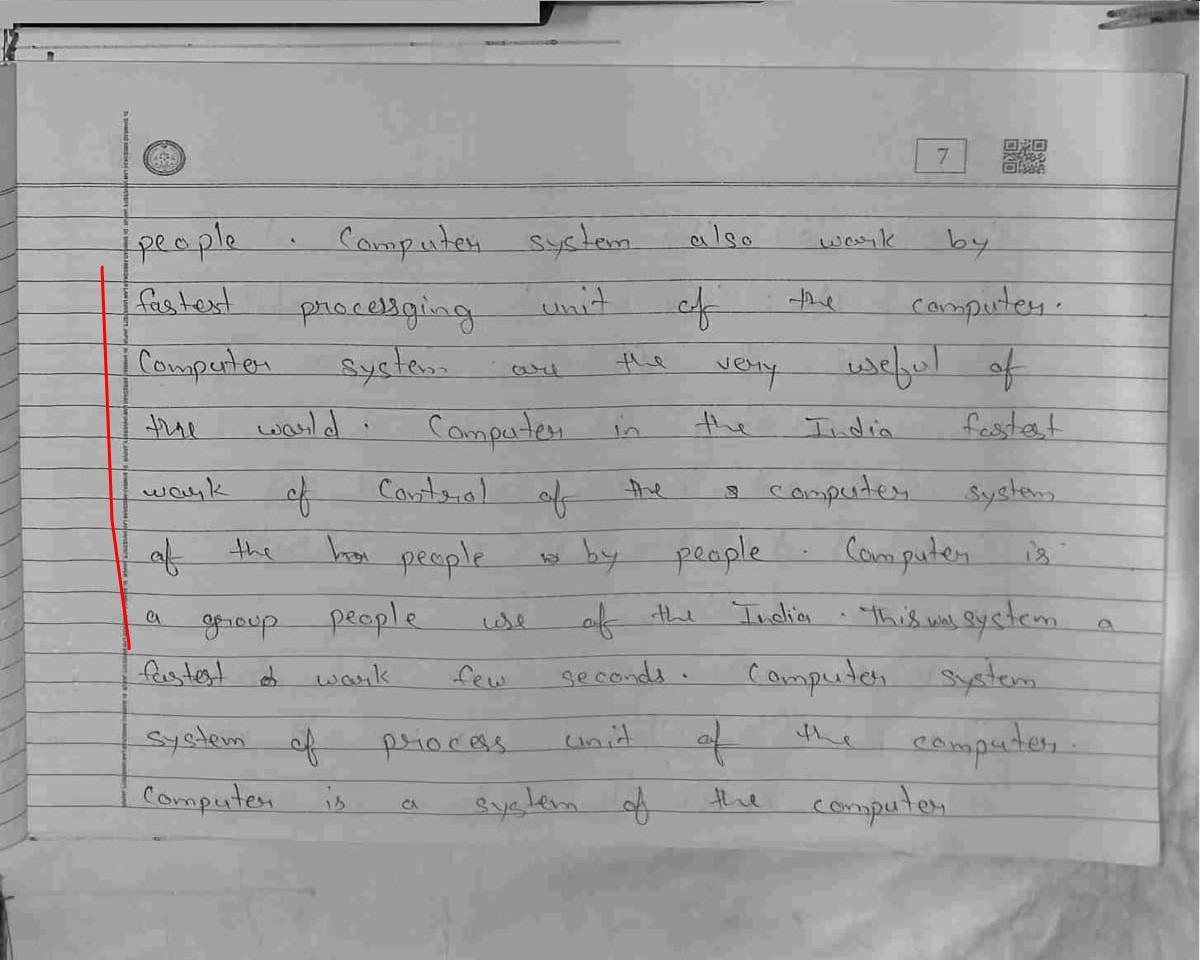 7
people . Computer system also work by
fastest processging unit of the computer.
Computer system are the very useful of
the world . Computer in the India fastest
work of Control of the computer system
of the people by people . Computer is
a group people use of the India . This was system a
fastest work few seconds . Computer system
system of process unit of the computer.
Computer is a system of the computer